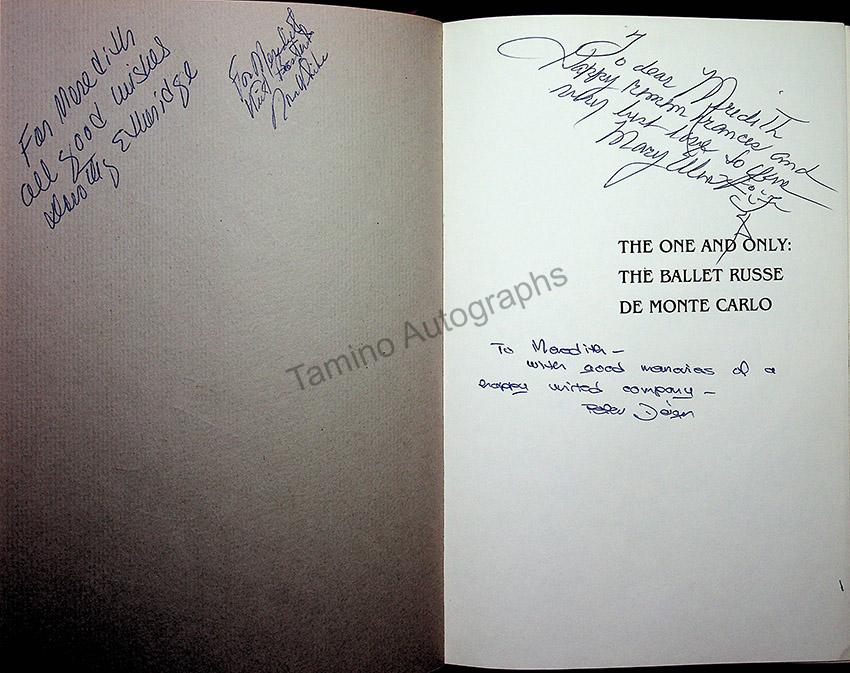 For Meredith
all good wishes
Dorothy Etheridge
For Meredith
To dear Meredith
Happy remembrances and
very best love to you
Mary Ellen
THE ONE AND ONLY:
THE BALLET RUSSE
DE MONTE CARLO
To Meredith –
with good memories of a
happy united company –
Peter Deign
Tamino Autographs